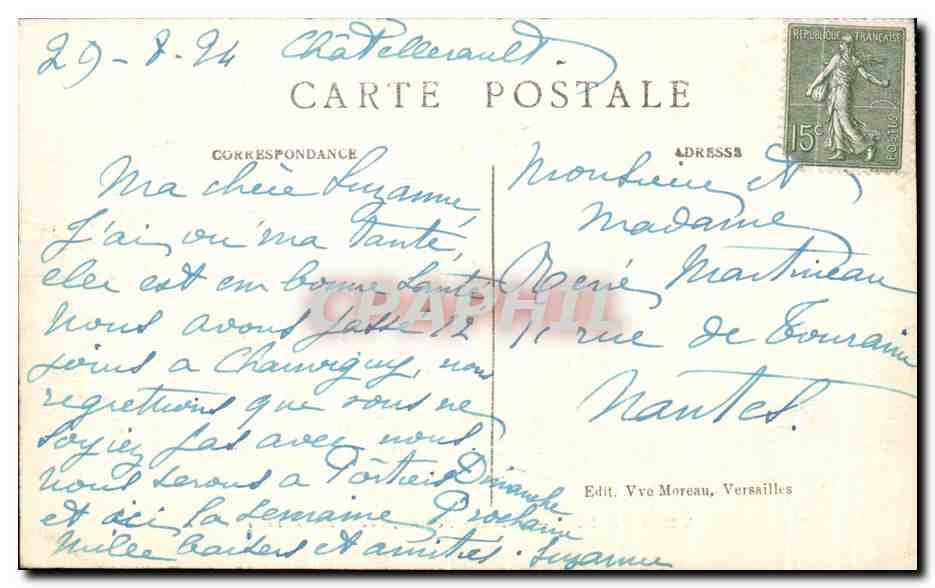 29-8-24 Châtellerault.
CARTE POSTALE
REPUBLIQUE FRANÇAISE
15c
POSTES
CORRESPONDANCE
Ma chère Suzanne,
J'ai vu ma tante,
elle est en bonne santé
nous avons passé 12
jours a Chauvigny, nous
regrettions que vous ne
soyiez pas avec nous
nous serons a Poitiers Dimanche
et ici la semaine Prochaine
Mille baisers et amitiés. Suzanne
ADRESSE
Monsieur et
Madame
René Martineau
11 rue de Touraine
Nantes.
Edit. Vve Moreau, Versailles
CPAPHIL